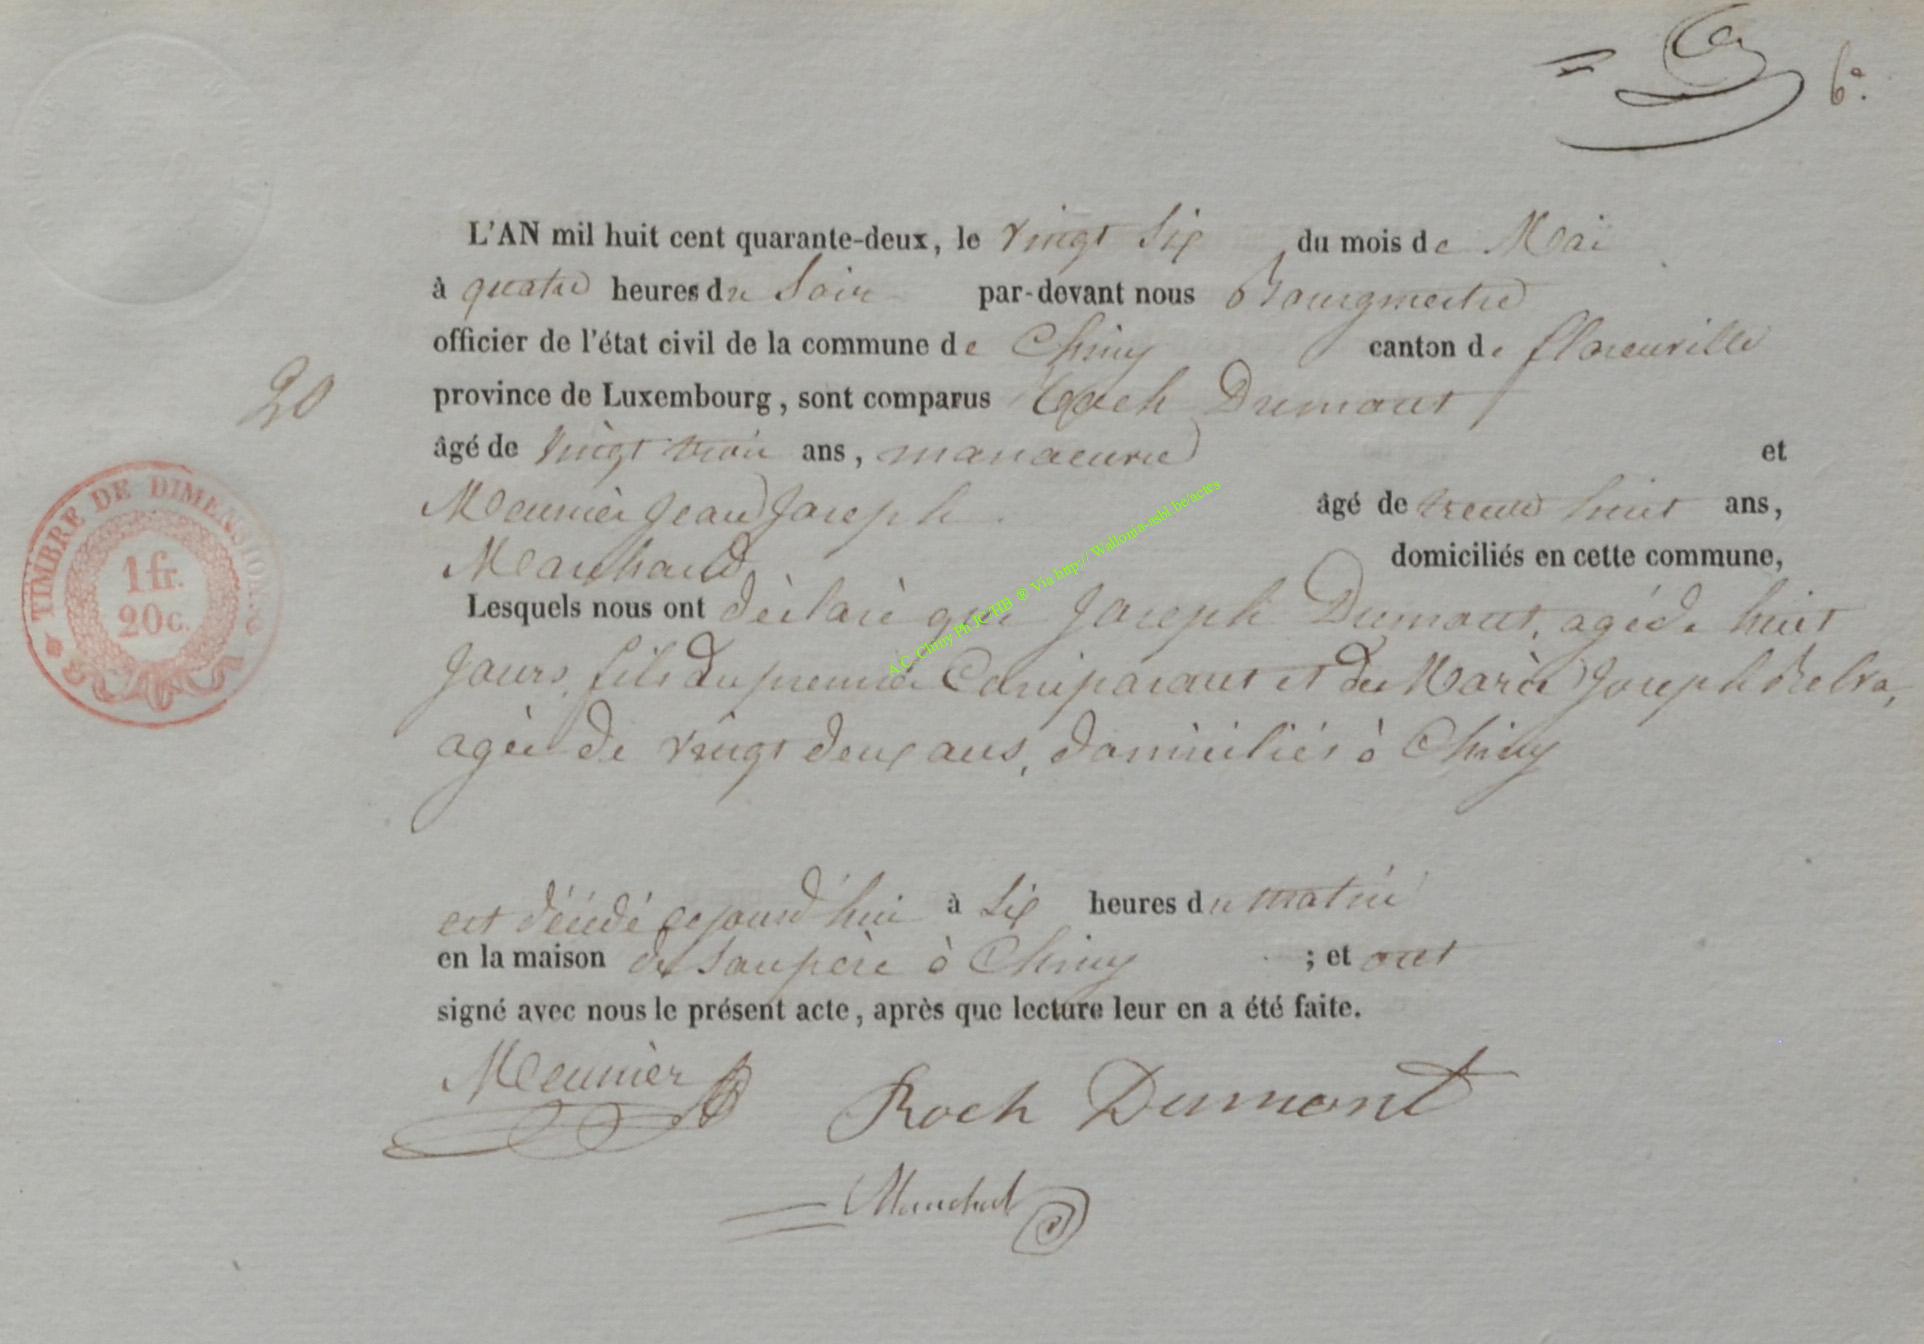 6º.
L'AN mil huit cent quarante-deux, le vingt six du mois de Mai
à quatre heures du Soir par-devant nous Bourgmestre
officier de l'état civil de la commune de Chiny canton de florenville
20
province de Luxembourg, sont comparus Roch Dumont
âgé de vingt trois ans, manoeuvre et
Meunier Jean Joseph âgé de trente huit ans,
Marchand domiciliés en cette commune,
Lesquels nous ont déclaré que Joseph Dumont, agé de huit
Jours, fils du premier Comparant et de Marie Joseph
agée de vingt deux ans, domiciliés à Chiny
est décédé cejourd'hui à Six heures du matin
en la maison de Son père à Chiny ; et ont
signé avec nous le présent acte, après que lecture leur en a été faite.
Meunier
Roch Dumont
TIMBRE DE DIMENSION.
1 fr.
20 c.
A.C. Chiny Ph JC HB ® Via http:// Wallonia-asbl.be/actes